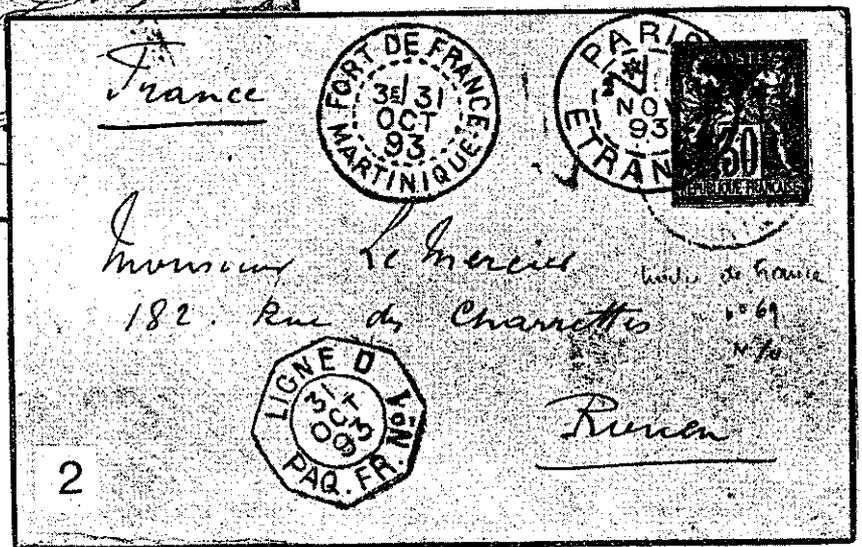 France
FORT DE FRANCE
3E/ 31
OCT
93
MARTINIQUE
PARIS
NOV
93
ETRAN
POSTES
30
REPUBLIQUE FRANÇAISE
Monsieur Le Mercier
182. Rue des Charrettes
timbre de France
n° 69
LIGNE D
31
OCT
93
PAQ. FR. No
Rouen
2